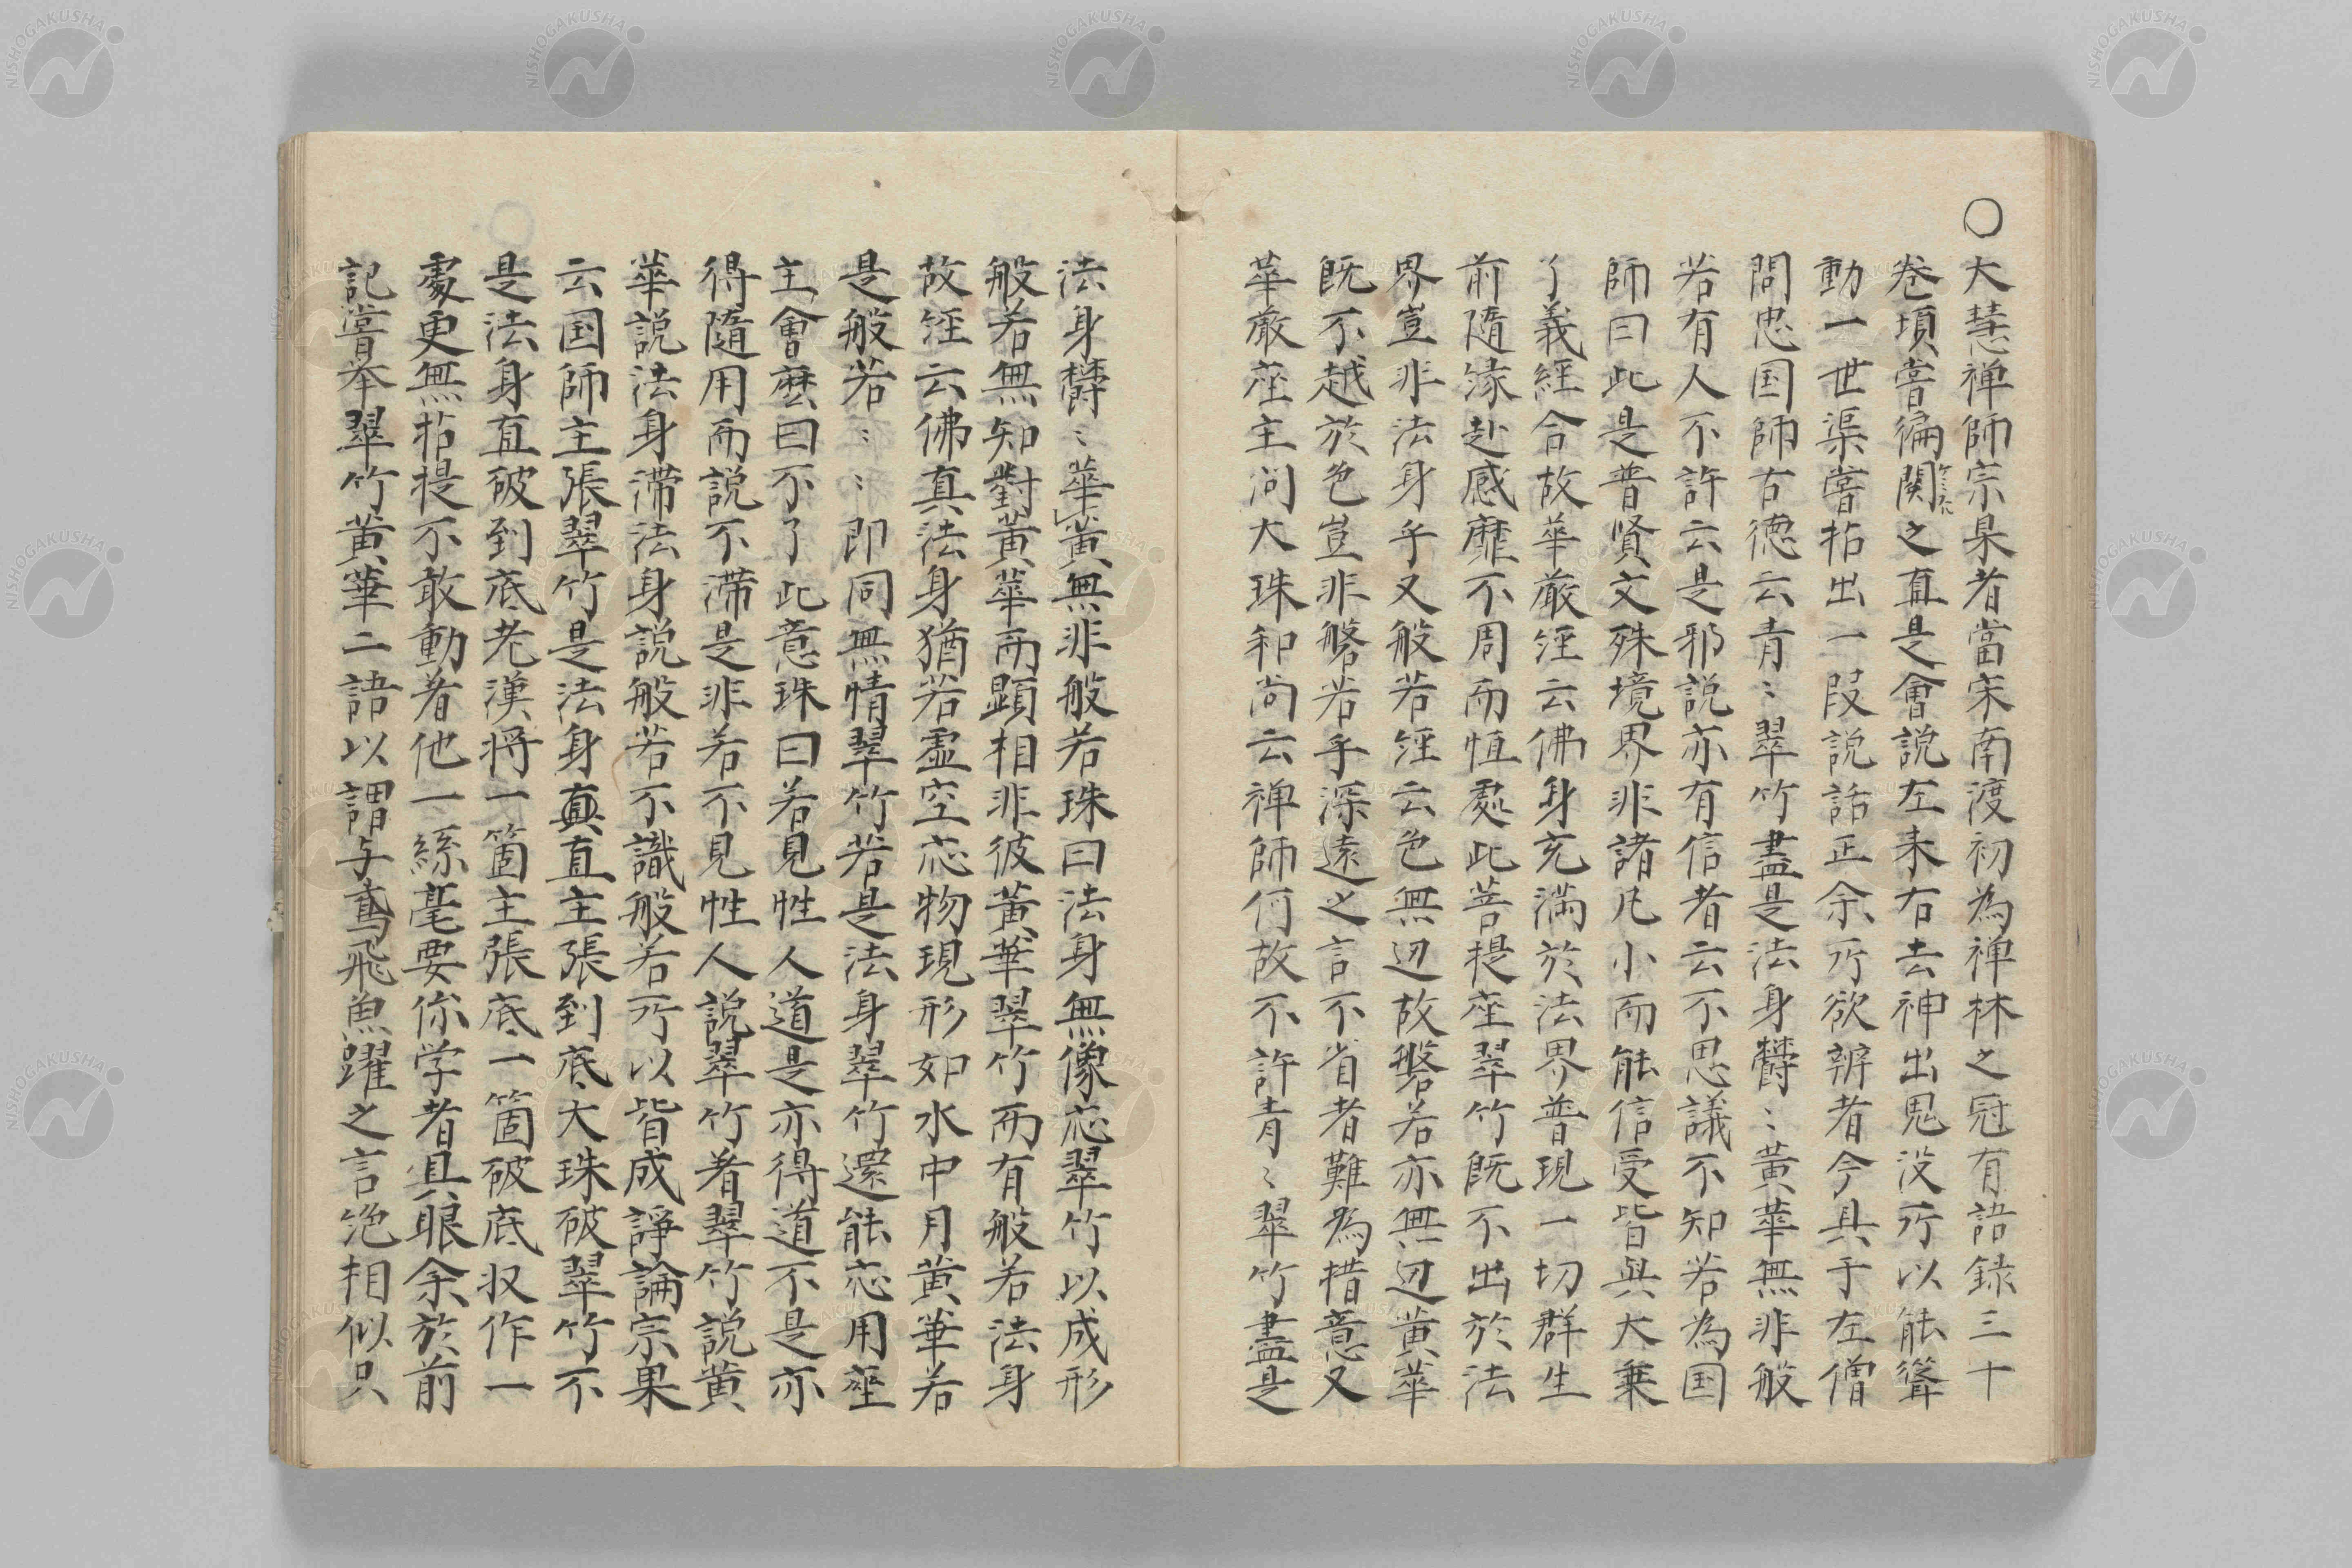 〇大慧禅師宗杲者當宋南渡初為禅林之冠有語録三十
巻頃嘗徧閲之直是會説左来右去神出鬼没所以能聳
動一世渠嘗拈出一段説話正余所欲辨者今具于左僧
問忠国師古徳云青〻翠竹盡是法身欝〻黄華無非般
若有人不許云是邪説亦有信者云不思議不知若為国
師曰此是普賢文殊境界非諸凡小而能信受皆與大乗
了義經合故華厳経云佛身充満於法界普現一切群生
前隨縁赴感靡不周而恒處此菩提座翠竹既不出於法
界豈非法身乎又般若経云色無辺故般若亦無辺黄華
既不越於色豈非般若乎深遠之言不省者難為措意又
華厳座主问大珠和尚云禅師何故不許青〻翠竹盡是
法身欝〻華黄無非般若珠曰法身無像応翠竹以成形
般若無知對黄華而顕相非彼黄華翠竹而有般若法身
故経云佛真法身猶若虚空応物現形如水中月黄華若
是般若〻〻即同無情翠竹若是法身翠竹還能応用座
主會麽曰不了此意珠曰若見性人道是亦得道不是亦
得隨用而説不滞是非若不見性人説翠竹着翠竹説黄
華説法身滞法身説般若不識般若所以皆成諍論宗果
云国師主張翠竹是法身直主張到底大珠破翠竹不
是法身直破到底老漢将一箇主張底一箇破底収作一
處更無拈提不敢動着他一絲毫要你学者具眼余於前
記嘗举翠竹黄華二語以謂与鳶飛魚躍之言絶相似只
NISHOGAKUSHA